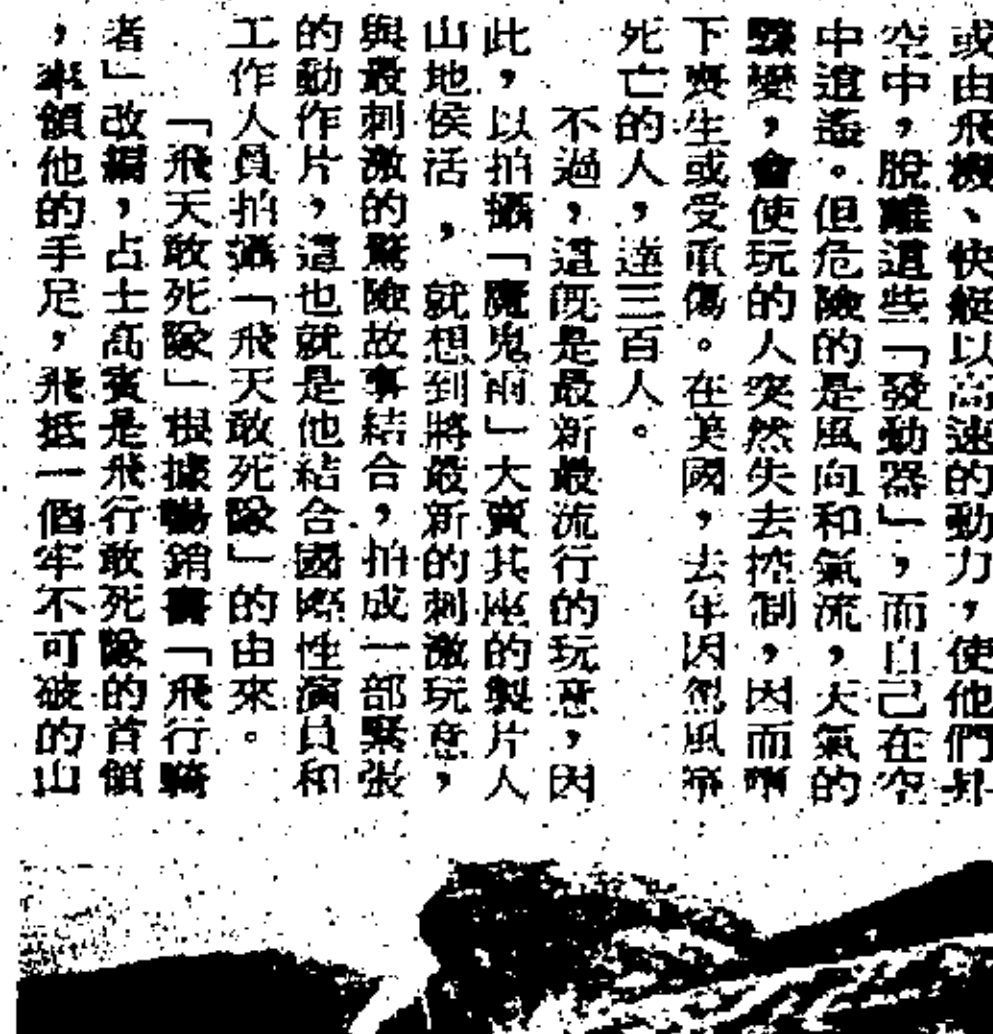 或由飛機、快艇以高速的動力，使他們昇
空中，脫離這些「發動器」，而自己在空
中逍遙。但危險的是風向和氣流，天氣的
驟變，會使玩的人突然失去控制，因而
下喪生或受重傷。在美國，去年因忽風帝
死亡的人，達三百人。
不過，這既是最新最流行的玩意，因
此，以拍攝「魔鬼雨」大賣其座的製片人
山地侯活，就想到將最新的刺激玩意，
與最刺激的驚險故事結合，拍成一部緊張
的動作片，這也就是他結合國際性演員和
工作人員拍攝「飛天敢死隊」的由來。
「飛天敢死隊」根據暢銷書「飛行騎
者」改編，占士高賓是飛行敢死隊的首領
，率領他的手足，飛抵一個牢不可破的山